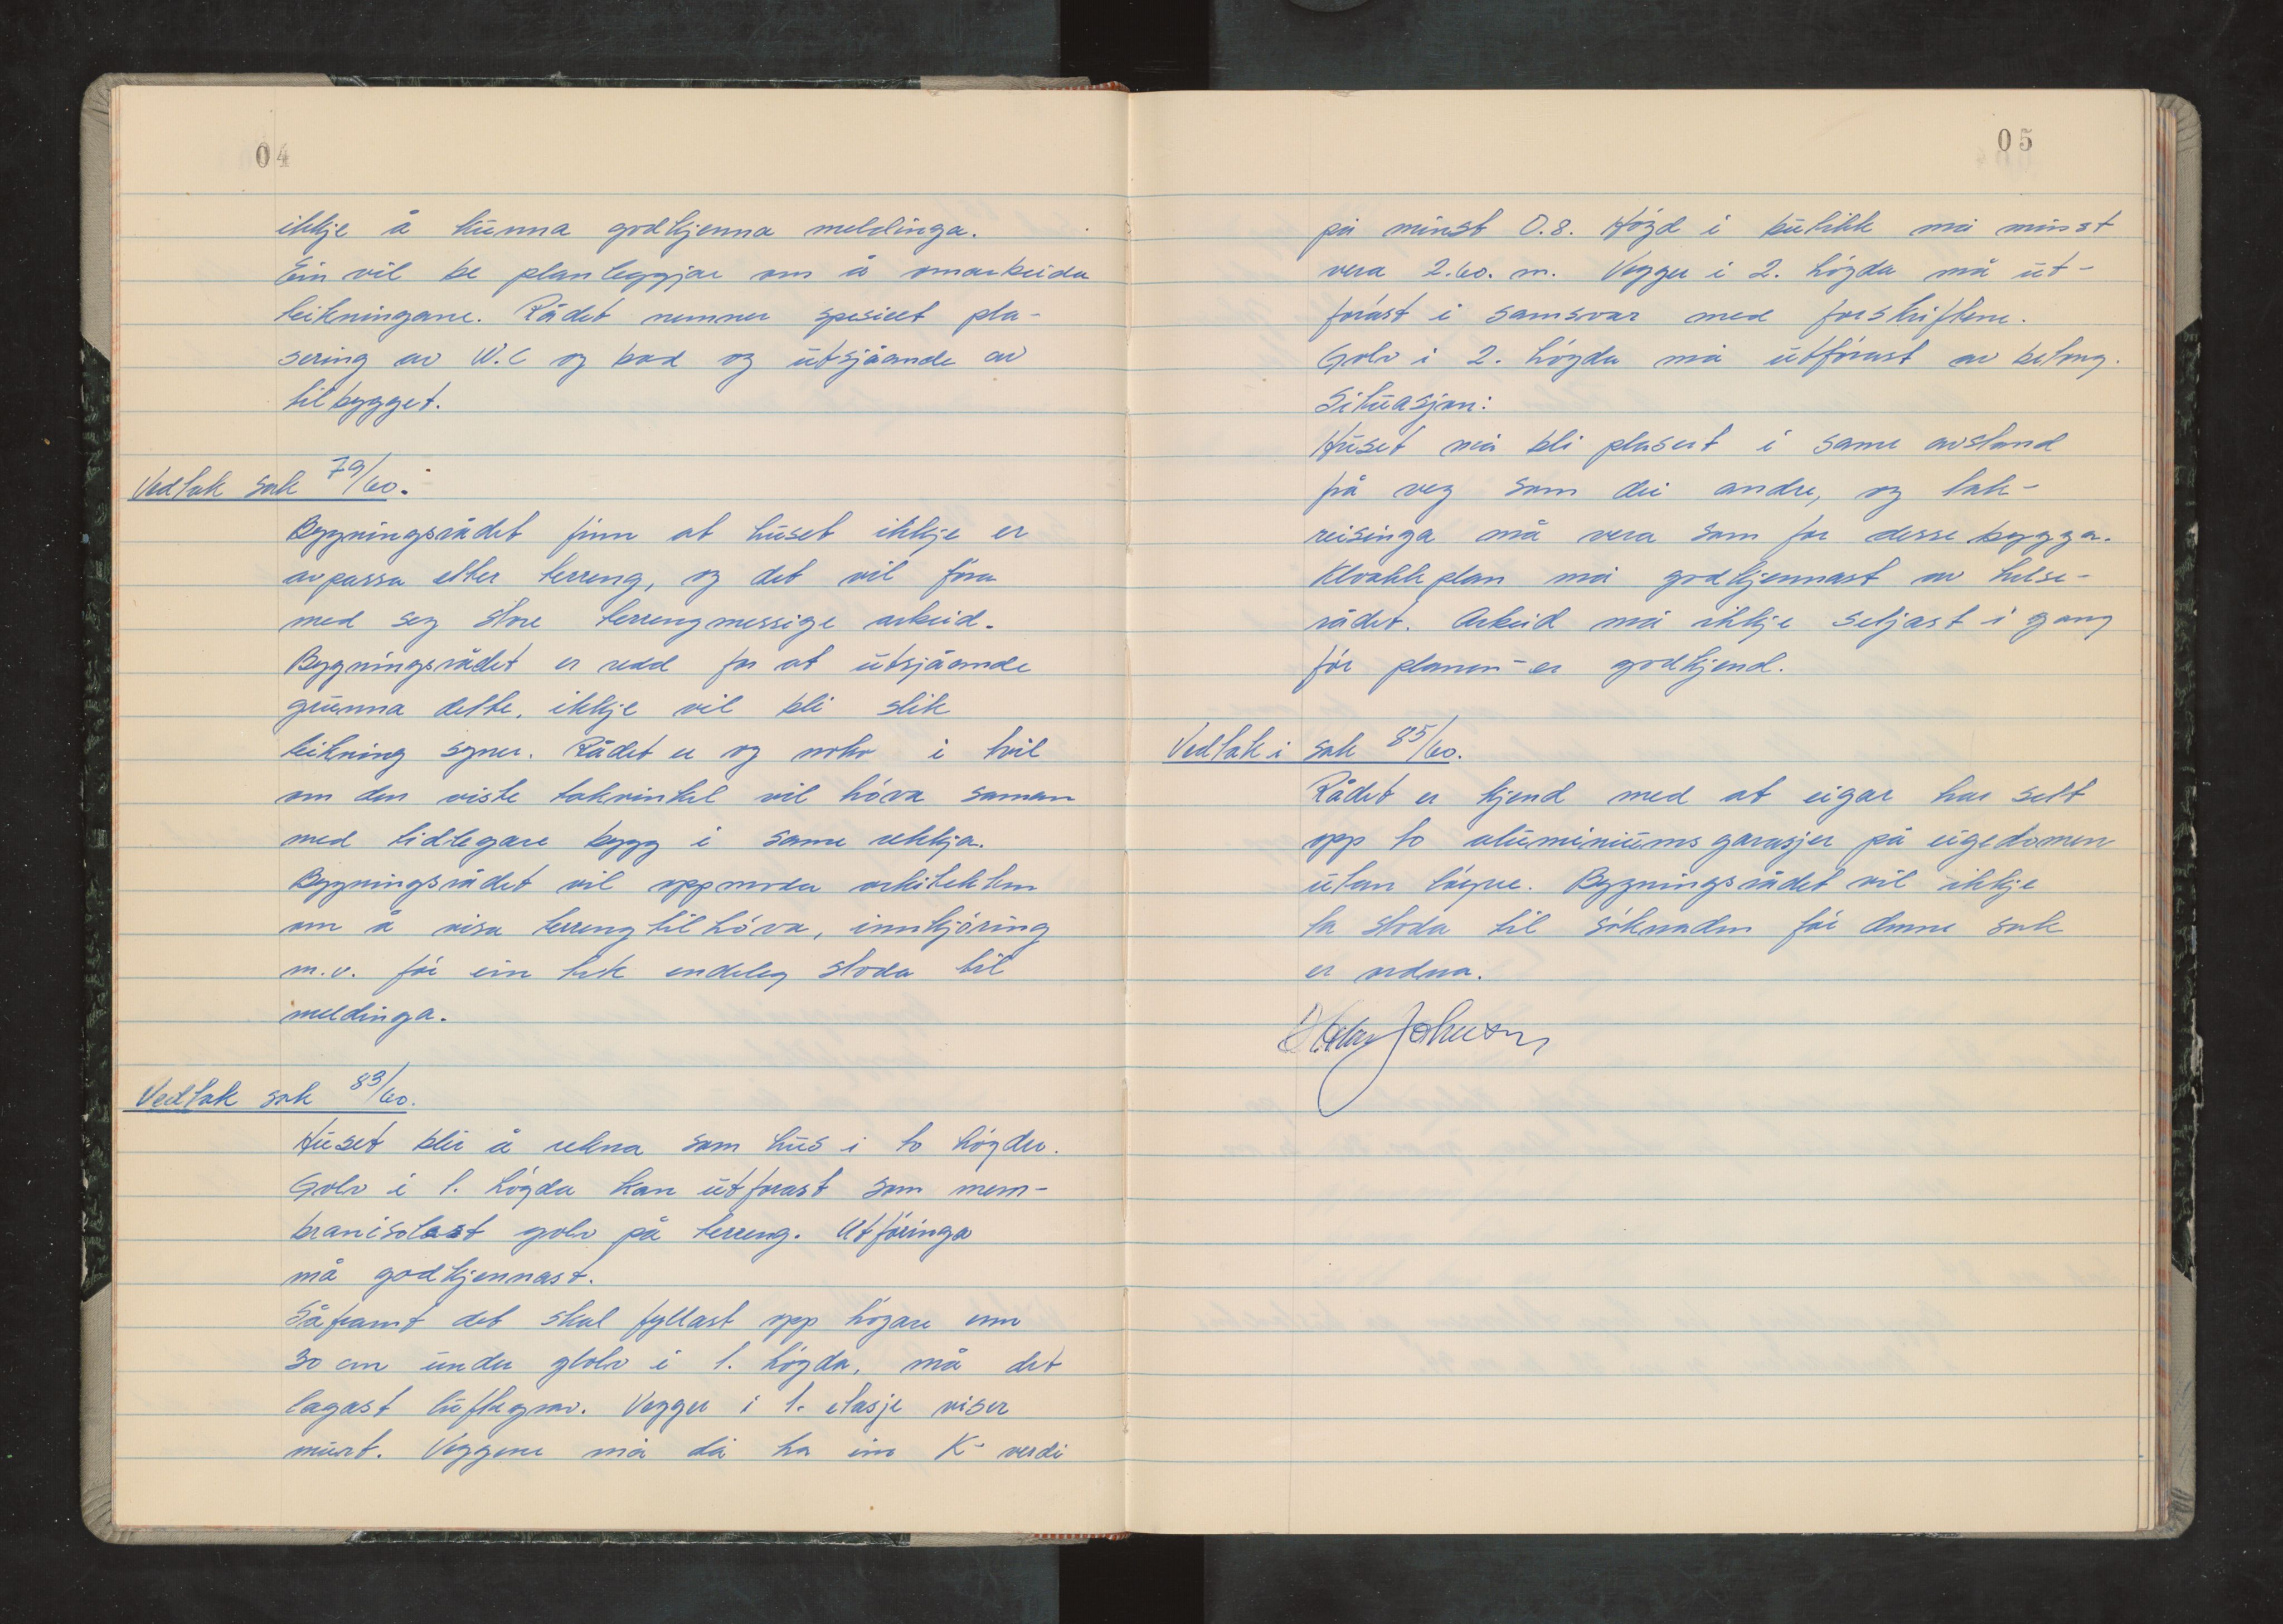 04
ikkje å kunna godkjenna meldinga.
Ein vil be planleggjar om å omarbeida
teikningane. Rådet nemner spesielt pla-
sering av W.C og bad og utsjåande av
tilbygget.
Vedtak sak 79/60.
Bygningsrådet finn at huset ikkje er
avpassa etter terreng, og det vil föra
med seg store terrengmessige arbeid.
Bygningsrådet er redd for at utsjåande
grunna dette, ikkje vil bli slik
teikning syner. Rådet er og noko i tvil
om den viste takvinkel vil höva saman
med tidlegare bygg i same rekkja.
Bygningsrådet vil oppmoda arkitekten
om å visa terrengtilhöva, innkjöring
m.v. för ein tek endeleg stoda til
meldinga.
Vedtak sak 83/60.
Huset blir å rekna som hus i to högder.
Golv i 1. högda kan utforast som mem-
branisolast golv på terreng. Utföringa
må godkjennast.
Såframt det skal fyllast opp högare enn
30 cm under glolv i 1. högda, må det
lagast luftegrav. Vegger i 1. etasje viser
murt. Veggene må då ha ein K-verdi
05
på minst 0.8. Högd i butikk må minst
vera 2.60. m. Vegger i 2. högda må ut-
förast i samsvar med forskriftene.
Golv i 2. högda må utförast av betong.
Situasjon:
Huset må bli plasert i same avstand
frå veg som dei andre, og tak-
reisinga må vera som for desse bygga.
Kloakkplan må godkjennast av helse-
rådet. Arbeid må ikkje setjast i gang
för planen er godkjend.
Vedtak i sak 85/60.
Rådet er kjend med at eigar har sett
opp to aluminiums garasjer på eigedomen
utan löyve. Bygningsrådet vil ikkje
ta stoda til söknaden för denne sak
er ordna.
Johnson